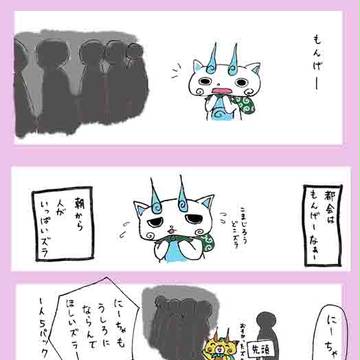 もんげー
都会は
もんげーなぁー
こまじろう
どこズラ
朝から
人が
いっぱいズラ
にーちゃ
先頭
にーちゃも
うしろに
ならんで
ほしいズラー
一人5パック